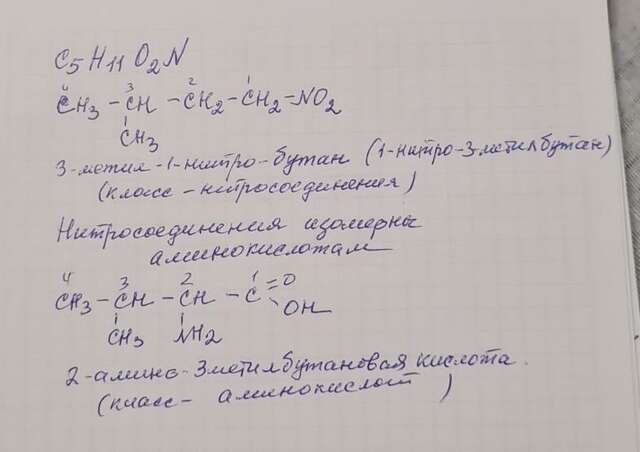 C5H11O2N
4 3 2 1
CH3 - CH - CH2 - CH2 - NO2
CH3
3-метил-1-нитро-бутан (1-нитро-3метилбутан)
(класс - нитросоединения)
Нитросоединения изомерны
аминокислотам
4 3 2 1
CH3 - CH - CH - C = O
OH
CH3 NH2
2-амино-3метилбутановая кислота.
(класс - аминокислот)